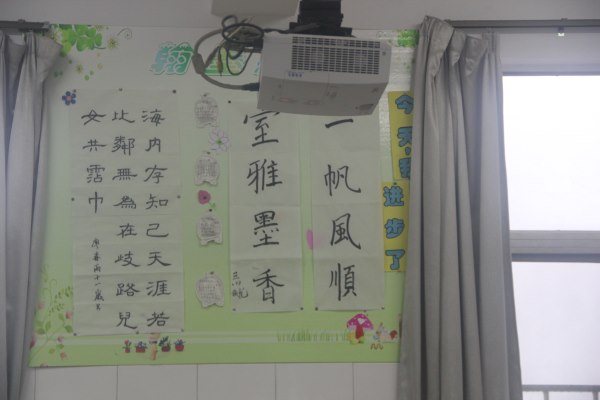 今天
进步了
一帆風順
室雅墨香
海内存知己天涯若
比鄰無為在歧路兒
女共霑巾